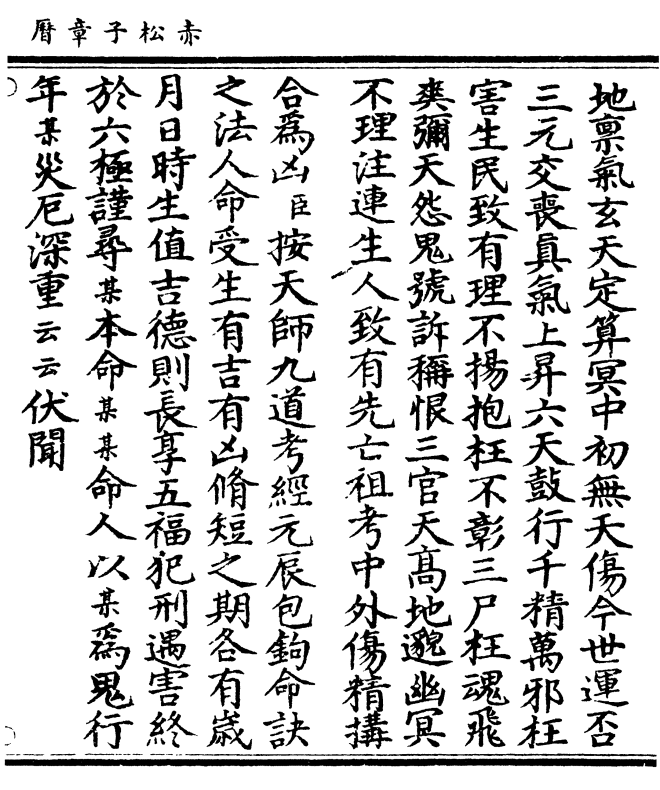 赤松子章曆
地禀氣玄天定算冥中初無夭傷今世運否
三元交喪真氣上昇六天鼓行千精萬邪枉
害生民致有理不揚抱枉不彰三尸枉魂飛
爽彌天怨鬼號訴稱恨三官天高地邈幽冥
不理注連生人致有先亡祖考中外傷精搆
合爲凶臣按天師九道考經元辰包鉤命訣
之法人命受生有吉有凶脩短之期各有歲
月日時生值吉德則長享五福犯刑遇害終
於六極謹尋某本命某某命人以某爲鬼行
年某災厄深重云云伏聞